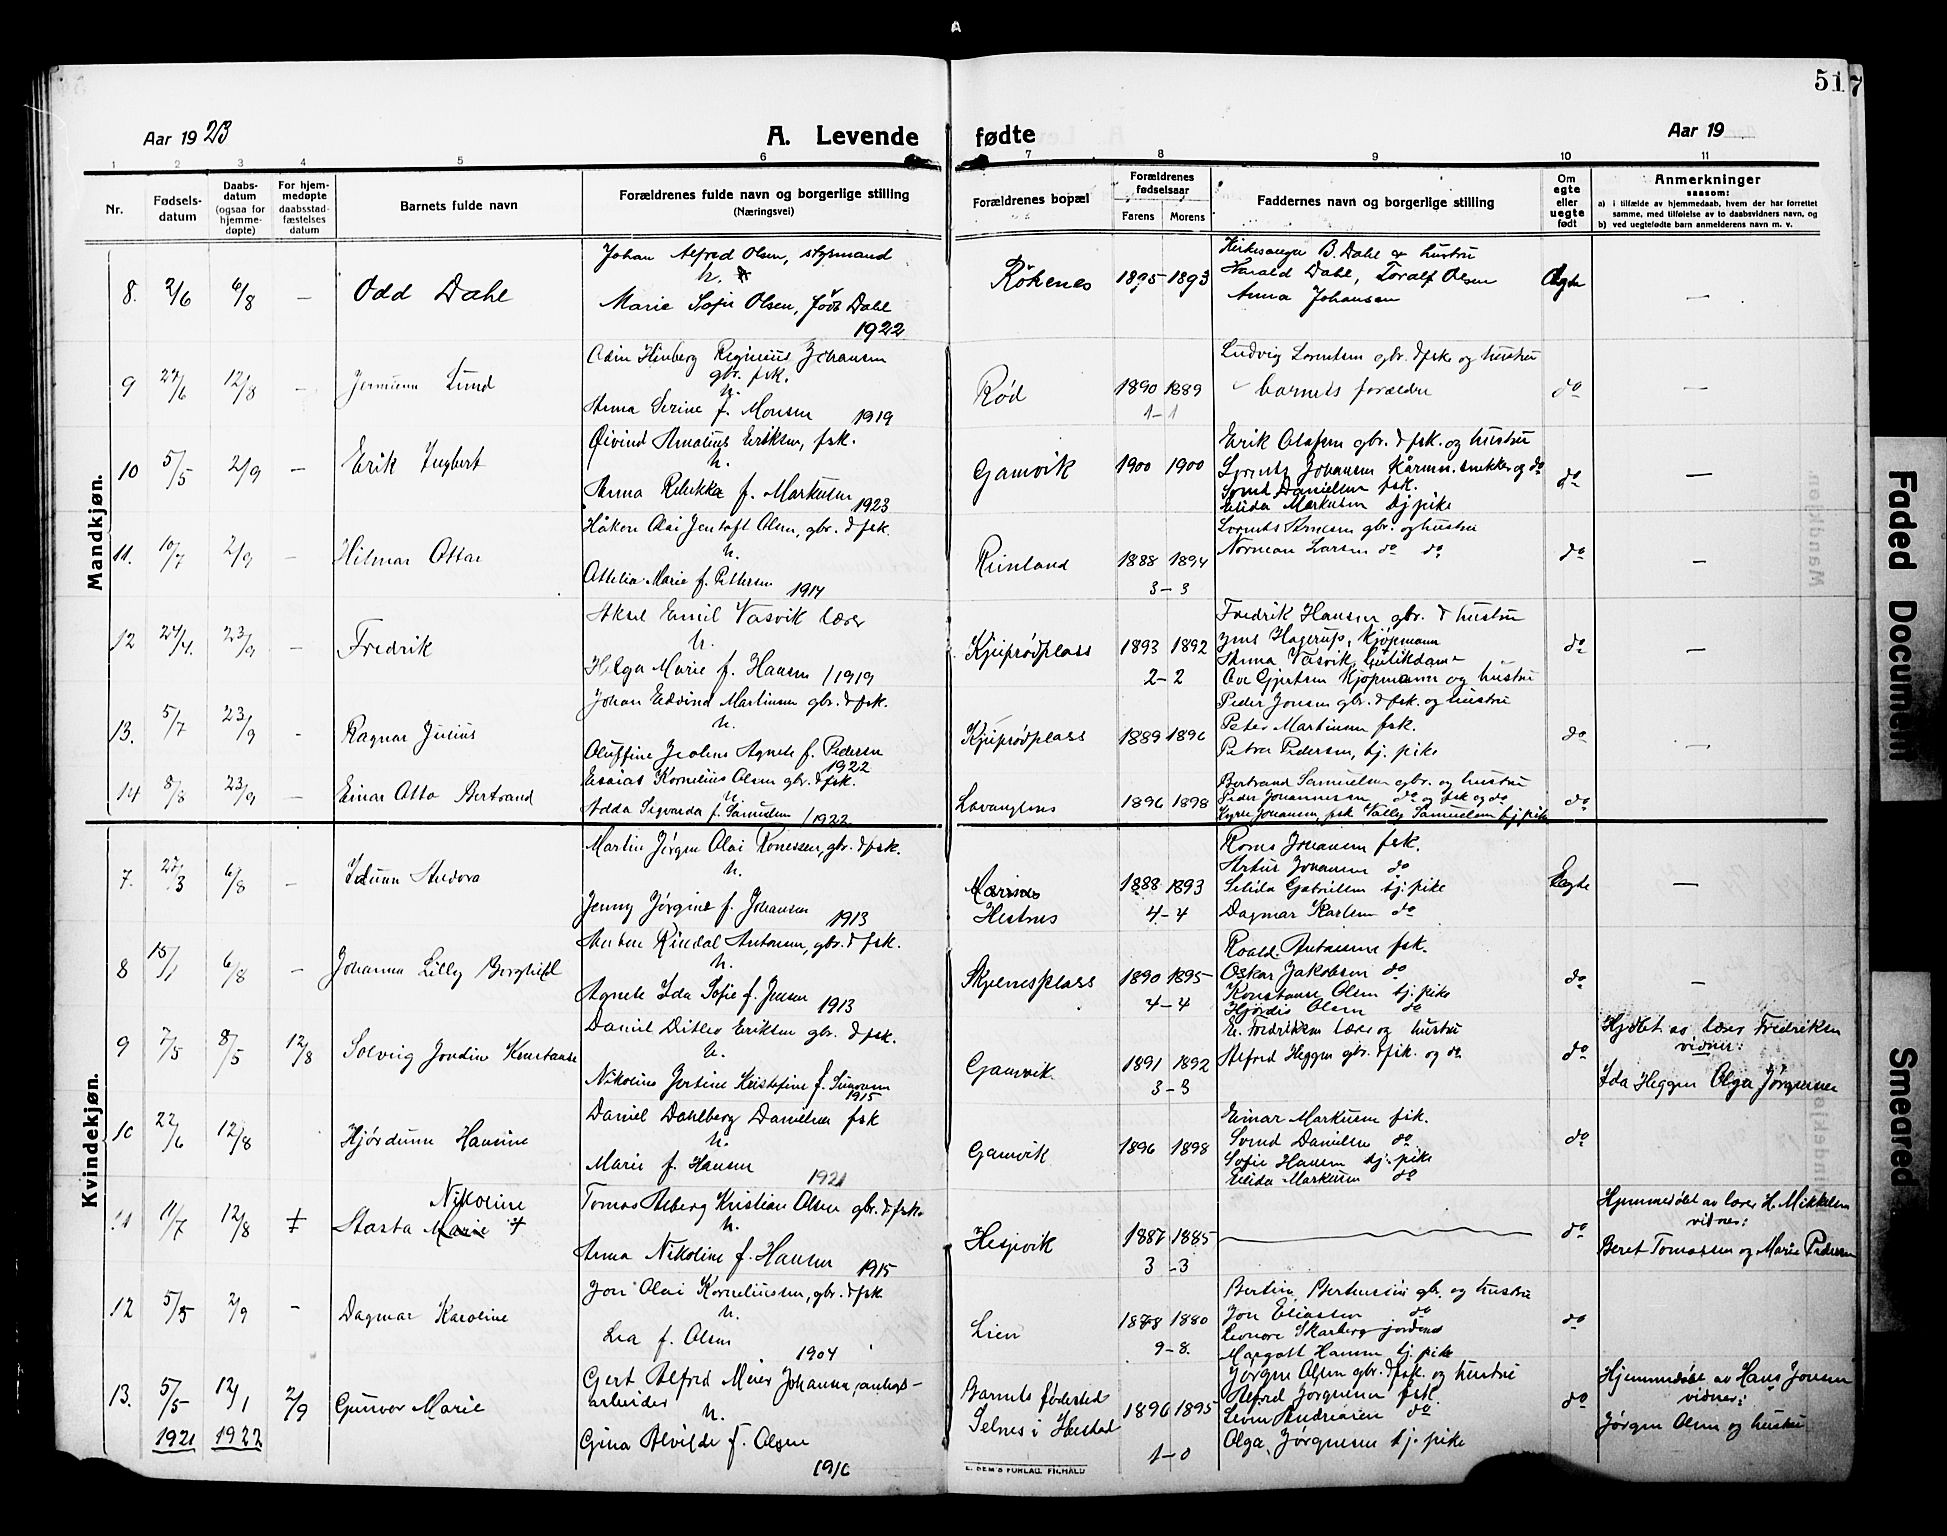 A
517
Aar 1923
A. Levende fødte
Aar 19
1 2 3 4 5 6 7 8 9 10 11
Nr.
Fødsels-
datum
Daabs-
datum
(ogsaa for
hjemme-
døpte)
For hjem-
medøpte
daabsstad-
fæstelses
datum
Barnets fulde navn
Forældrenes fulde navn og borgerlige stilling
(Næringsvei)
Forældrenes bopæl
Forældrenes
fødselsaar
Farens Morens
Faddernes navn og borgerlige stilling
Om
egte
eller
uegte
født
Anmerkninger
saasom:
a) i tilfælde av hjemmedaab, hvem der har forrettet
samme, med tilføielse av to daabsvidners navn, og
b) ved uegtefødte barn anmelderens navn m. v.
Mandkjøn.
Johan Alfred Olsen, styrmand
h.
Marie Sofie Olsen, født Dahl
1922
8. 2/6 6/8 — Odd Dahl
Røkenes 1895 - 1893
Kirkesanger B. Dahl og hustru
Harald Dahl, Toralf Olsen
Anna Johansen
Ægte —
Odin Hinberg Reginius Johansen
gbr. fsk.
h.
Anna Serine f. Monsen 1919
9 27/6 12/8 — Jermunn Lund
Rød 1890 1889
1 - 1
Ludvig Lorentsen gbr. & fsk og hustru
barnets forældre
do —
Øivind Amatius Eriksen, fsk.
h.
Anna Rebekka f. Markusen
1923
10 5/5 2/9 — Erik Ingbert
Gamvik 1900 1900
Erik Olafsen gbr. & fsk. og hustru
Lorents Johansen Kårmn. snekker og do
Svend Danielsen fsk.
Elida Markusen tj. pike
do —
Håkon Olai Jentoft Olsen, gbr. & fsk.
h.
Ottelia Marie f. Pettersen 1914
11. 10/7 2/9 — Hilmar Ottar
Reinland 1888 1894
3 - 3
Lorents Arnesen gbr. og hustru
Norman Larsen do do
do —
Aksel Emil Vasvik lærer
h.
Helga Marie f. Hansen / 1919
12 24/4. 23/9 — Fredrik
Kjeiprødplass 1893 1892
2 - 2
Fredrik Hansen gbr. & hustru
Jens Hagerup, Kjøpmann
Anna Vasvik, butikdame
Ove Gjertsen Kjøpmann og hustru
do —
Johan Edvind Martinsen gbr. & fsk.
h.
Oluffine Jeoline Agnete f. Pedersen
1922
13. 5/7 23/9 - Ragnar Julius
Kjeiprødplass 1889 1896
Peder Jonsen gbr. & fsk. og hustru
Peter Martinsen fsk.
Petra Pedersen, tj. pike
do —
Esaias Kornelius Olsen gbr. & fsk.
h.
Adda Sigvarda f. Samuelsen / 1922
14 8/8 23/9 — Einar Otto Bertrand
Lavangsnes 1896 1898
Bertrand Samuelsen gbr. og hustru
Peder Johannessen do og fsk og do
Johansen, fsk Vally Samuelsen tj. pike
do
Kvindekjøn.
Martin Jørgen Olai Tonessen, gbr. & fsk.
h.
Jenny Jørgine f. Johansen 1913
7. 27/3 6/8 — Idunn Andora
Hestnes 1888 1893
4 - 4
Roms Johansen fsk.
Artur Johansen do
Selida Gabrielsen tj. pike
Dagmar Karlsen do
Ægte —
Anton Rindal Antonsen, gbr. & fsk.
h.
Agnete Ida Sofie f. Jensen 1913
8 15/1 6/8 — Johanna Lilly Borghild
Skjelnesplass 1890 1895
4 - 4
Roald Antonsen fsk.
Oskar Jakobsen do
Konstanse Olsen tj. pike
Hjørdis Olsen do
do —
Daniel Ditlev Eriksen gbr. & fsk.
h.
Nikoline Jertine Kristofine f. Simonsen
1915
9 7/5 8/5 12/8 Solveig Jondin Konstanse
Gamvik 1891 1892
3 - 3
E. Fredriksen lærer og hustru
Alfred Heggen gbr. & fsk. og do
do
Hjdbt av lærer Fredriksen
vidner:
Ida Heggen Olga Jørgensen
Daniel Dahlberg Danielsen fsk
h.
Marie f. Hansen 1921
10 22/6 12/8 Hjørdunn Hansine
Gamvik 1896 1898
Einar Markusen fsk.
Svend Danielsen do
Sofie Hansen tj. pike
Elida Markusen do
do
Tomas Asberg Kristian Olsen gbr. & fsk.
h.
Anna Nikoline f. Hansen 1915
11 11/7 12/8 Nikoline
Stasta Marie
Hesjevik 1887 1885
3 - 3
do
Hjemmedøbt av lærer H. Mikkelsen
vidner:
Beret Tomassen og Marie Pedersen
Jon Olai Korneliussen, gbr. & fsk
h.
Lea f. Olsen
1904
12 5/5 2/9 — Dagmar Karoline
Lien 1878 1880
9 - 8.
Bertin Berthussen gbr. og hustru
Jon Eliassen do
Leonore Skarberg jordmor
Margott Hansen tj. pike
do
Gert Alfred Meier Johansen, anlegs-
arbeider
h.
Gina Alvilde f. Olsen
1916
13. 5/5 12/1 2/9 Gunvor Marie
1921 1922
Gamnes fødested
Selnes i Harstad 1896 1895
1 - 0
Jørgen Olsen gbr. & fsk. og hustru
Alfred Jørgensen fsk.
Levin Andreasen do
Olga Jørgensen tj. pike
do
Hjemmedøbt av Hans Jensen
vidner:
Jørgen Olsen og hustru
E. SEM'S FORLAG, FR.HALD
Faded Document
Smeared